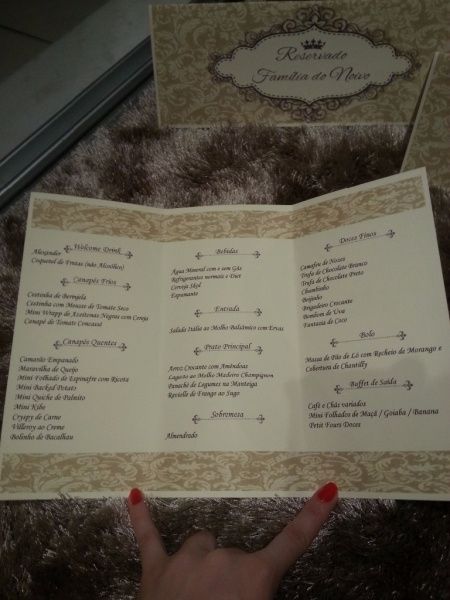 Reservado
Família do Noivo
Welcome Drink
Alexander
Coquetel de Frutas (não Alcoólico)
Canapés Frios
Cestinha de Beringela
Cestinha com Mousse de Tomate Seco
Mini Wrapp de Azeitonas Negras com Cereja
Canapé de Tomate Concassé
Canapés Quentes
Camarão Empanado
Maravilha de Queijo
Mini Folhado de Espinafre com Ricota
Mini Backed Potato
Mini Quiche de Palmito
Mini Kibe
Cryspy de Carne
Villeroy ao Creme
Bolinho de Bacalhau
Bebidas
Água Mineral com e sem Gás
Refrigerantes normais e Diet
Cerveja Skol
Espumante
Entrada
Salada Itália ao Molho Balsâmico com Ervas
Prato Principal
Arroz Crocante com Amêndoas
Lagarto ao Molho Madeira Champignon
Panaché de Legumes na Manteiga
Rocielle de Frango ao Sugo
Sobremesa
Almendrado
Doces Finos
Camafeu de Nozes
Trufa de Chocolate Branco
Trufa de Chocolate Preto
Churchinho
Beijinho
Brigadeiro Crocante
Bombom de Uva
Fantasia de Coco
Bolo
Massa de Pão de Ló com Recheio de Morango e
Cobertura de Chantilly
Buffet de Saída
Café e Chás variados
Mini Folhados de Maçã / Goiaba / Banana
Petit Fours Doces